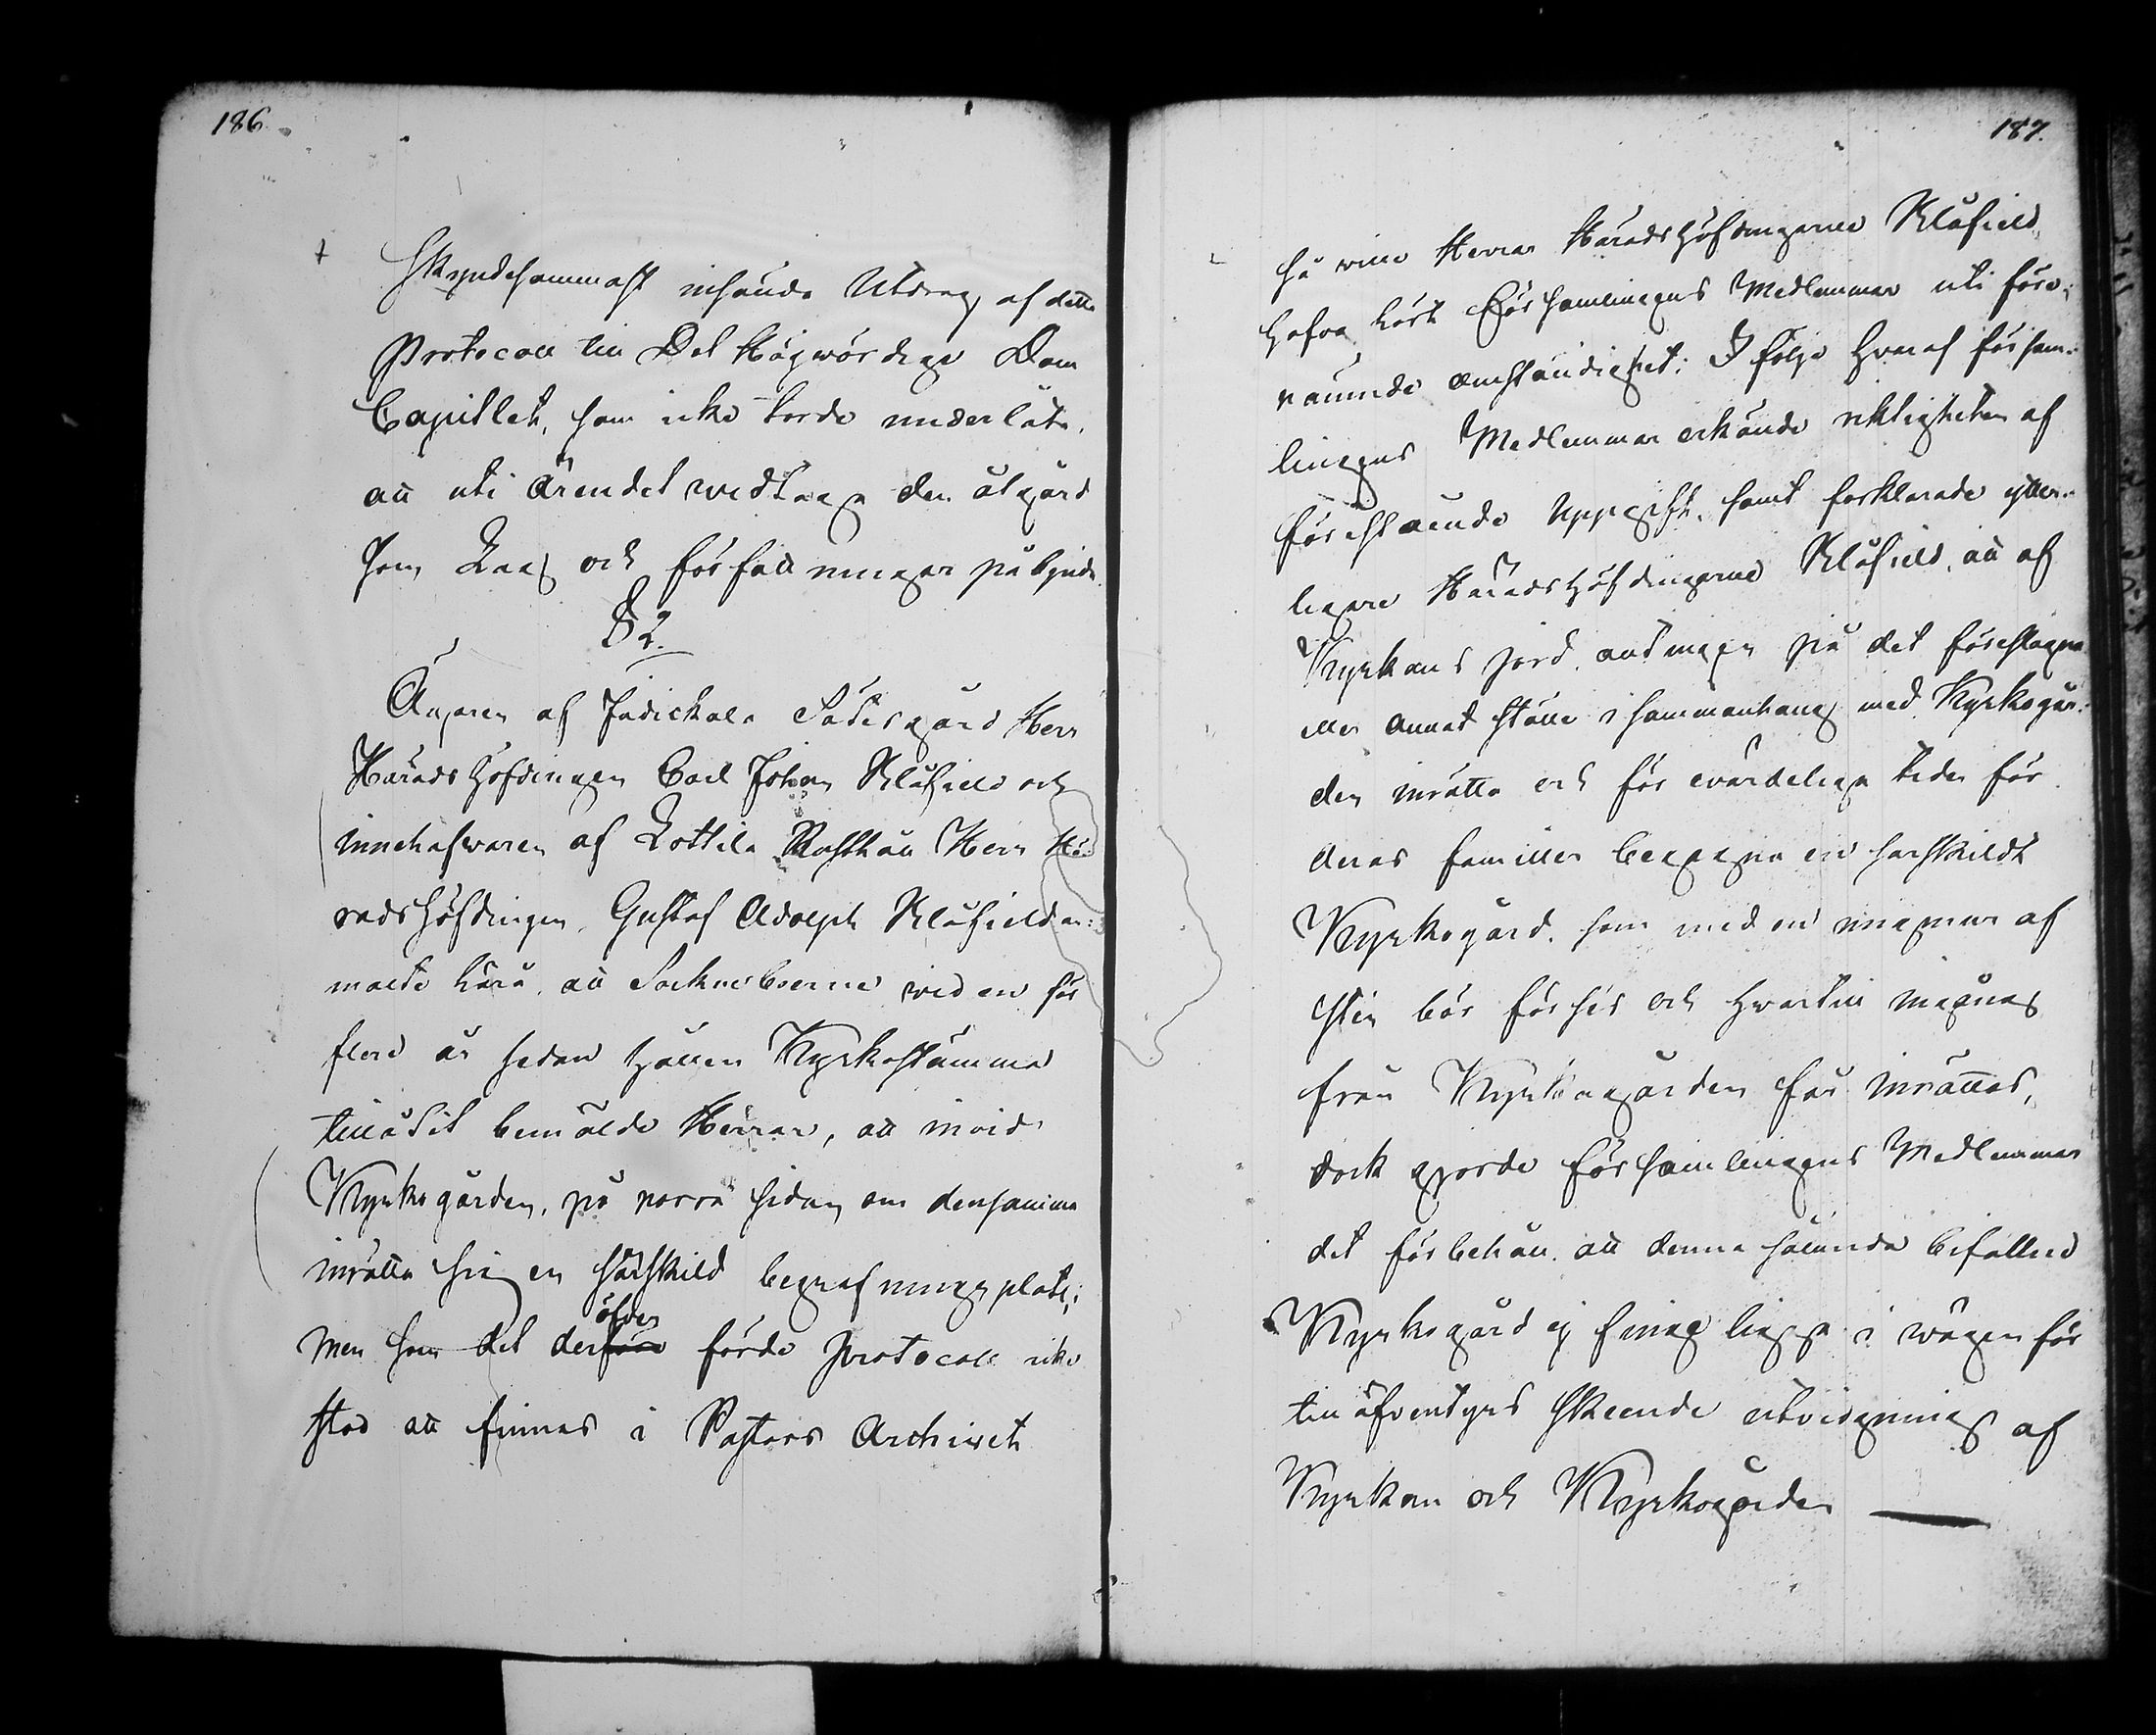 186.
skyndsammast insända Utdrag af detta
Protocoll till Det Högwördige Dom
Capitlet, som icke torde underlåta,
att uti ärendet widtaga den åtgärd
som Lag och författningar påbjuda.
§ 2.
Ägaren af Jutickala Säterigård Herr
Häradshöfdingen Carl Johan Klåfield och
innehafwaren af Lottila Rusthåll Herr Hä-
radshöfdingen Gustaf Adolph Klåfield an-
mälte härå, att Sockneboerne wid en för
flere år sedan hållen Kyrkostämma
tillåtit bemälde Herrar, att invid
Kyrkogården, på norra sidan om densamma
inrätta sig en särskild begrafningsplats;
öfver
men som det der före förde Protocoll icke
stod att finnas i Pastors Archivet
187.
så wille Herrar Häradshöfdingarne Klåfield,
hafva hört Församlingens Medlemmar uti före-
nämnde omständighet; I följe hvaraf försam-
lingens Medlemmar erkände riktigheten af
förestående uppgift, samt förklarade ytter-
ligare Häradshöfdingarne Klåfield, att af
Kyrkans jord, antingen på det föreslagna
eller annat ställe i sammanhang med Kyrkogår-
den inrätta och för evärdeliga tider för
deras familler begagna en särskildt
Kyrkogård, som med en ringmur af
sten bör förses och hvartill ingång
från Kyrkogården får inrättas,
dock gjorde församlingens Medlemmar
det förbehåll, att denna sålunda bifallne
Kyrkogård ej finge ligga i wägen för
till äfventyrs skeende utvidgning af
Kyrkan och Kyrkogården